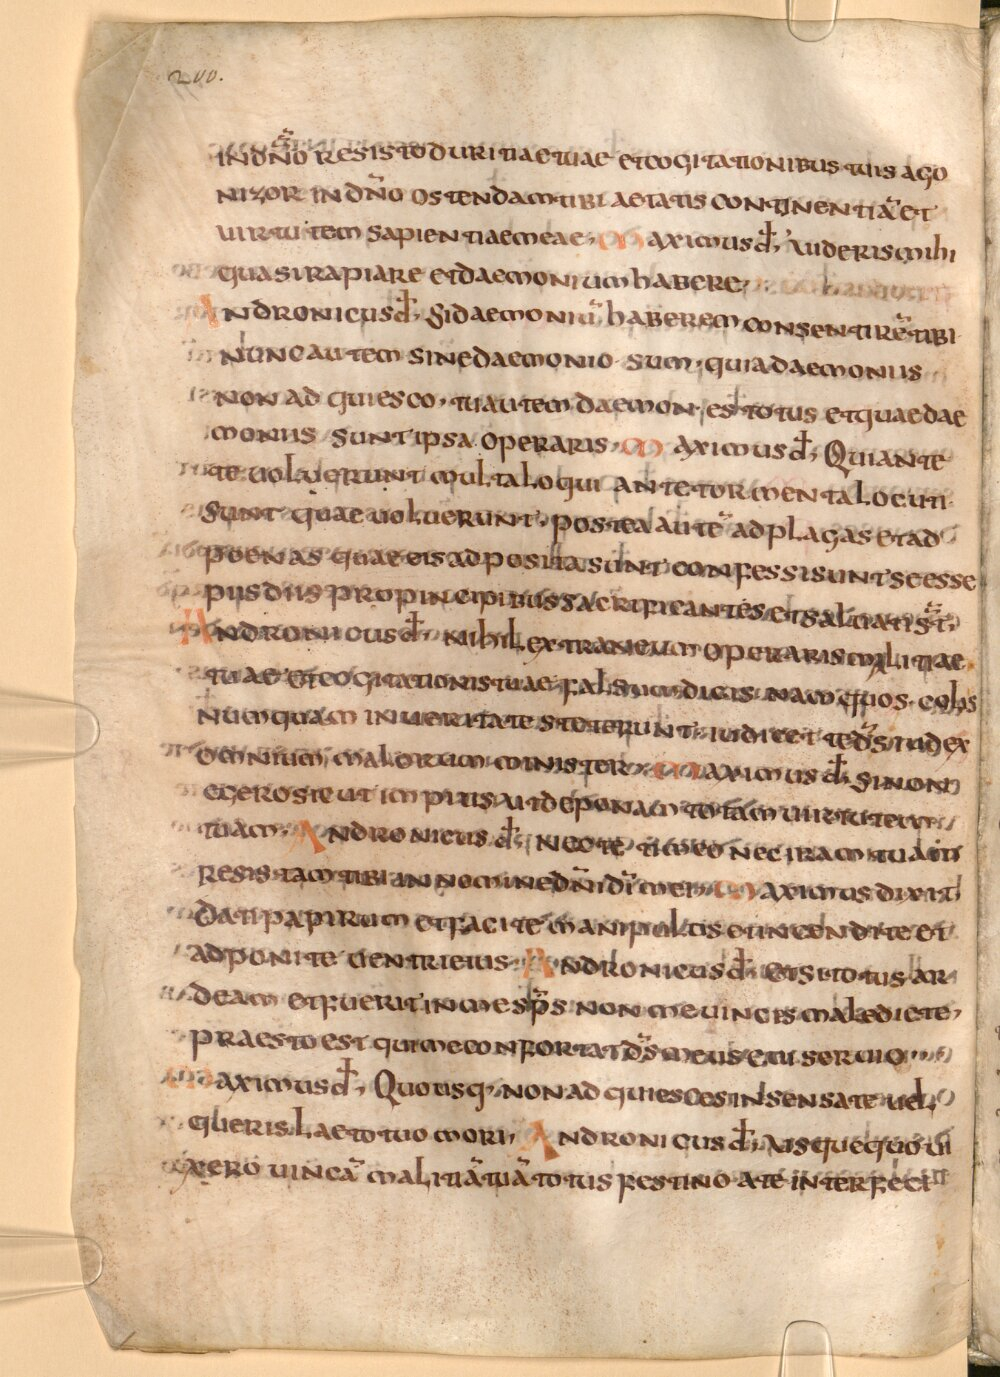 200.
in dn̄o resisto duritiae tuae et cogitationibus tuis ago
nizor in dn̄o ostendam tibi aetatis continentiā et
uirtutem sapientiae meae, Maximus đ, Uideris mihi
quasi rapiare et daemonium habere,
Andronicus đ, Si daemoniū haberem consentirē tibi
nunc autem sine daemonio sum, quia daemoniis
non adquiesco, tu autem daemon es totus et quae dae
moniis sunt ipsa operaris, Maximus đ, Qui ante
te uoluerunt multa loqui ante tormenta locuti
sunt quae uoluerunt, postea autē ad plagas et ad
poenas quae eis adposita sunt confessi sunt se esse
piis diis pro principibus sacrificantes et saluati st̄,
Andronicus đ, Nihil extraneum operaris malitiae
tuae et cogitationis tuae falsum dicis nam et quos colis
numquam in ueritate steterunt, iudicet te ds̄ iudex
omnium malorum minister, Maximus đ, Si non
egero sicut impius ut deponam totam uirtutem
tuam, Andronicus đ, Nec te timeo nec iram tuam
resistam tibi in nomine dn̄i dī mei, Maximus dixit
Dati papirum et facite manipulos et incendite et
adponite uentri eius, Andronicus đ, Et si totus ar
deam et fuerit in me sp̄s non me uincis maledicte,
praesto est qui me confortat ds̄ meus cui seruio,
Maximus đ, Quousq, non adquiesces insensate uel
queris laeto tuo mori, Andronicus đ, Usquequo ui
xero uincā malitiā tuā totus festino a te interfeci